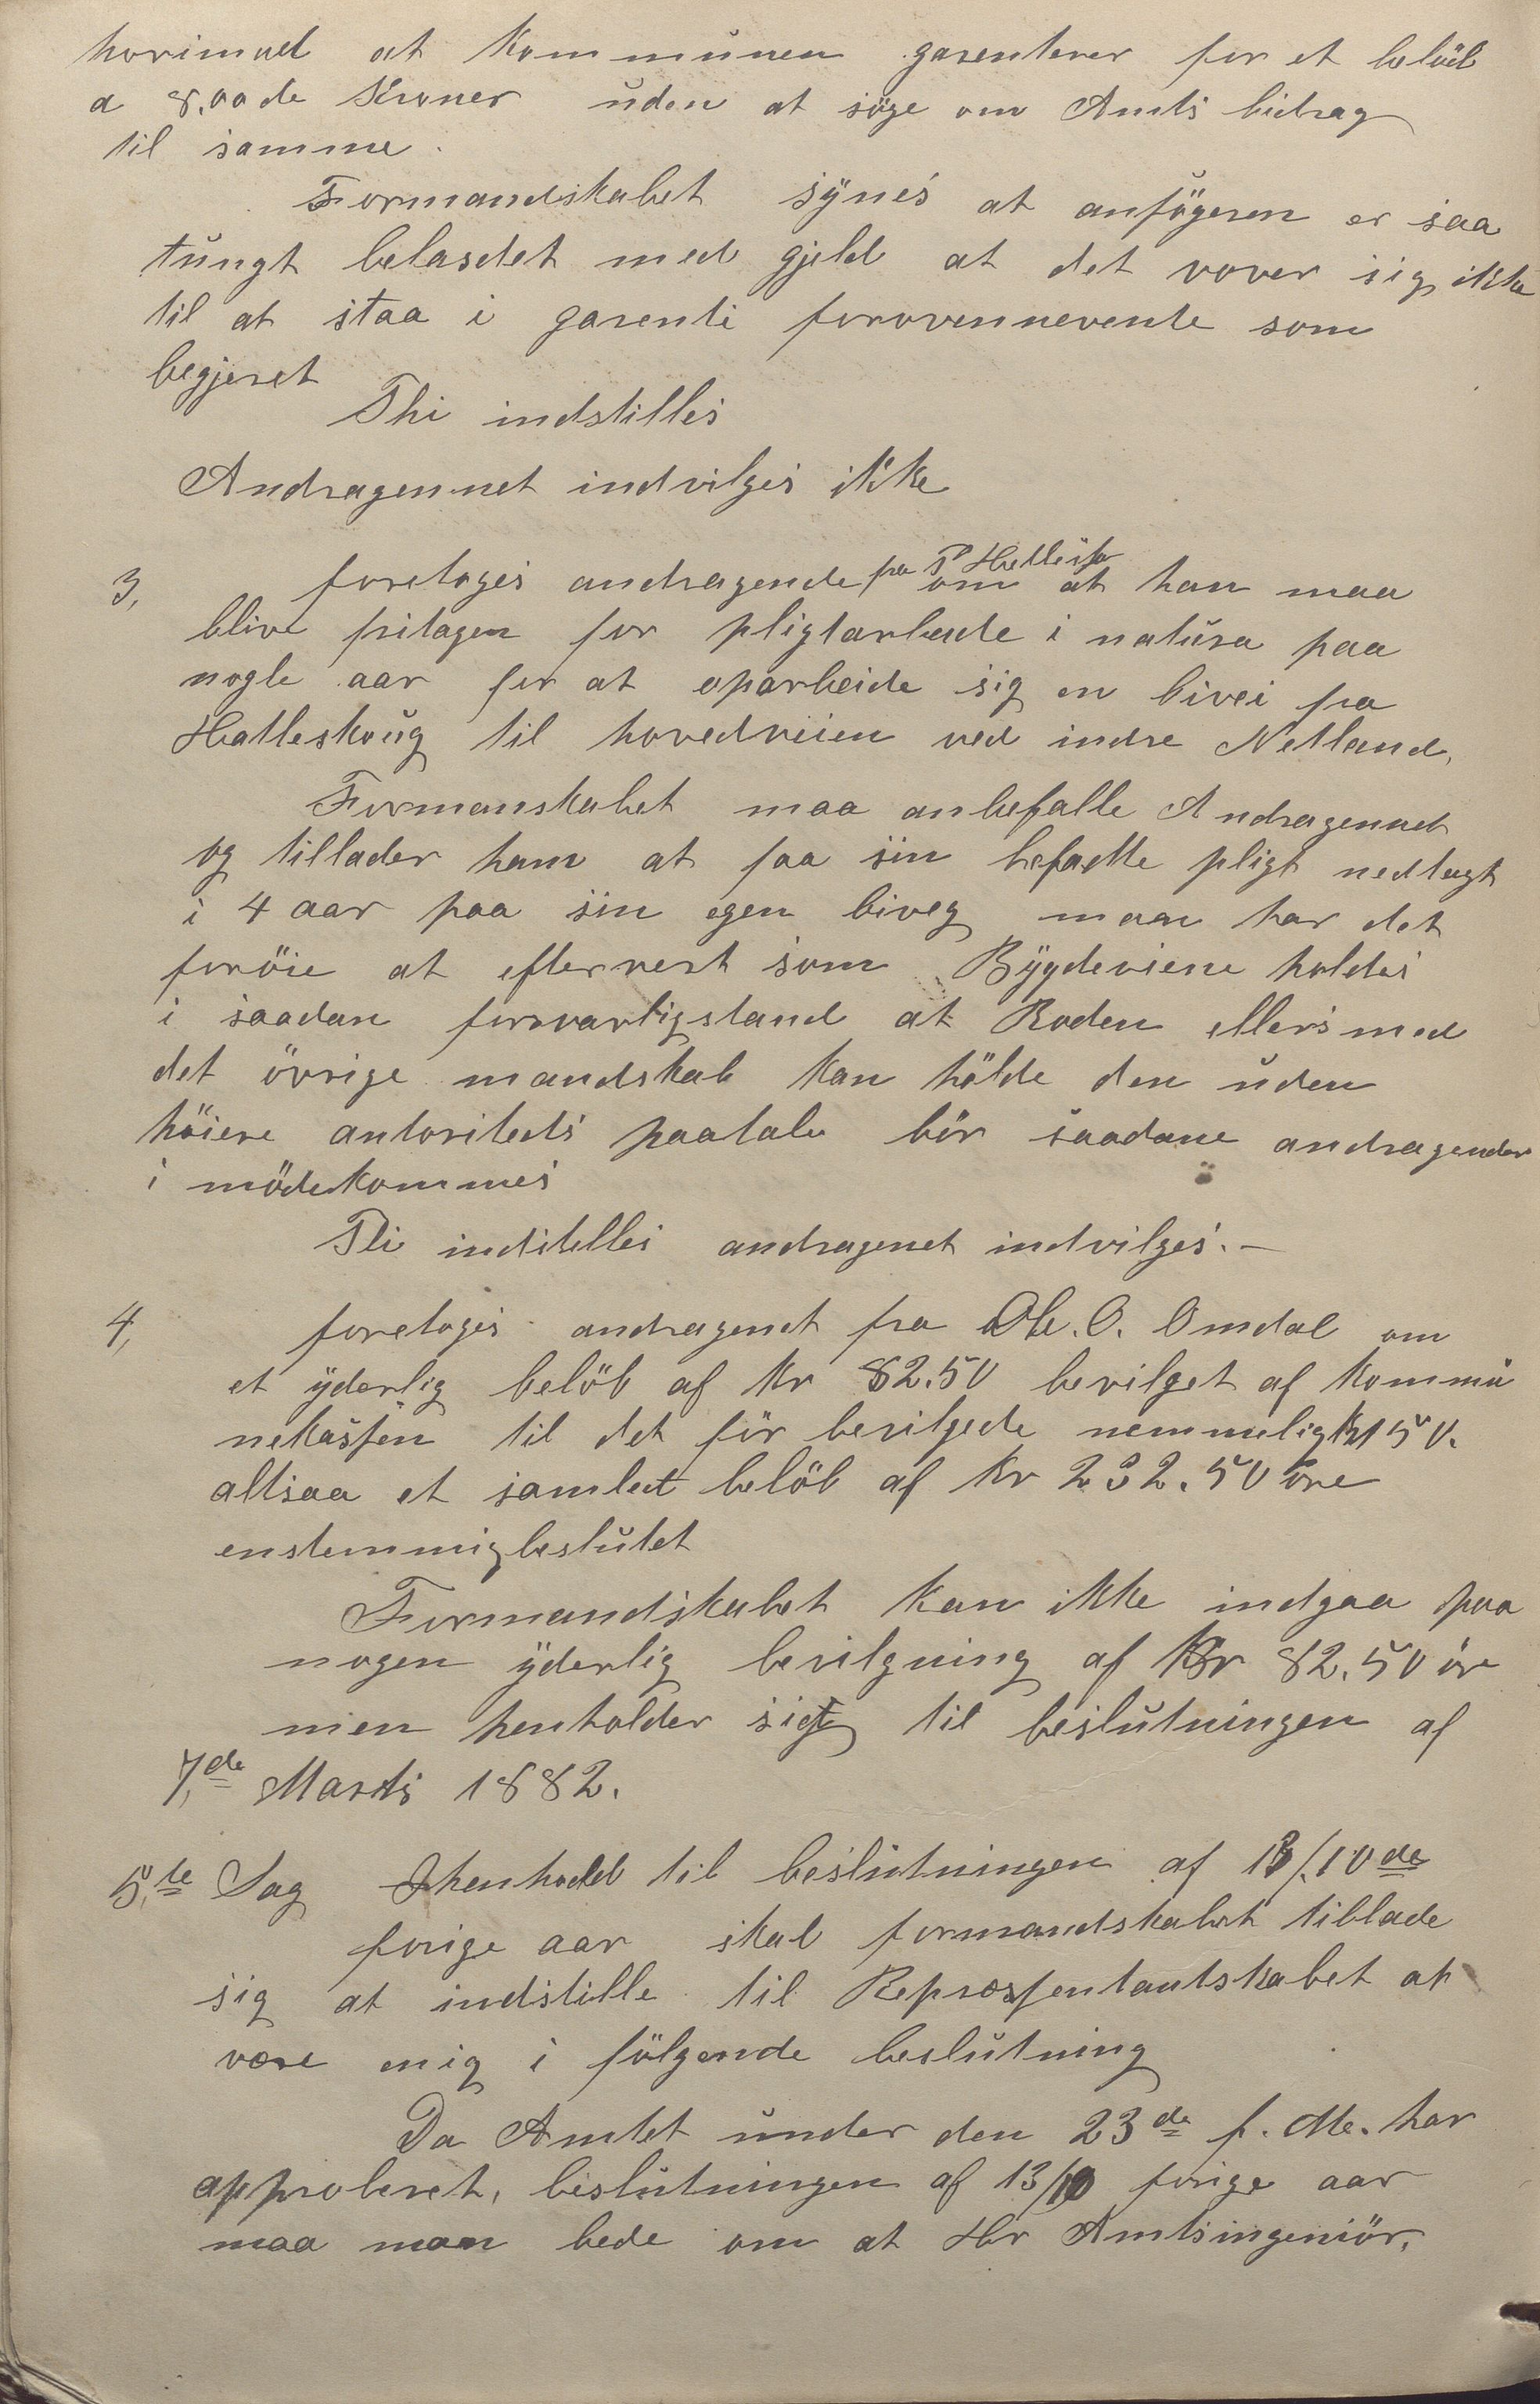 horimod at kommunen garenterer for et belöb
a 8,00de Kroner uden at söge om Amts bidrag
til samme.
Formandskabet synes at ansögeren er saa
tungt belasdet med gjeld at det vover sig ikke
til at staa i garenti forovennevente som
begjeret
Thi indstilles
Andragennet indvilges ikke
3, foretoges andragende fra T Hatlesko om at han maa
blive fritagen for pligtarbeide i natura paa
nogle aar for at oparbeide sig en bivei fra
Hatleskoug til hovedveien ved indre Netland.
Formanskabet maa anbefalle Andragennet
og tillader ham at faa sin befadte pligt nedlagt
i 4 aar paa sin egen biveg man har det
foröie at efterverst som Bygdeviene holdes
i saadan forsvarligstand at Roden ellers med
det övrige mandskab kan hölde den uden
höiere antoriteds paatale bör saadane andragender
i mödekommes
Thi indstelles andragenet indvilges.-
4, foretoges andragendt fra Ole. O. Omdal om
et yderlig belöb af Kr 82.50 bevilget af kommu
nekassen til det för bevilgede nemmelig Kr 150.
altsaa et samlet belöb af Kr 232.50 öre
enstemmig beslutet
Formandskabet kan ikke indgaa paa
nogen yderlig bevilgning af Kr 82.50 öre
men henholder sig til beslutningen af
7,de Marts 1882.
5,te Sag Ihenhold til beslutningen af 13/10de
forige aar skal formandskabet tillade
sig at indstille til Repræssentantskabet at
være enig i fölgende beslutning
Da Amtet under den 23de f. Me. har
approberet, beslutningen af 13/10 forige aar
maa man bede om at Hr Amtsingeniör,